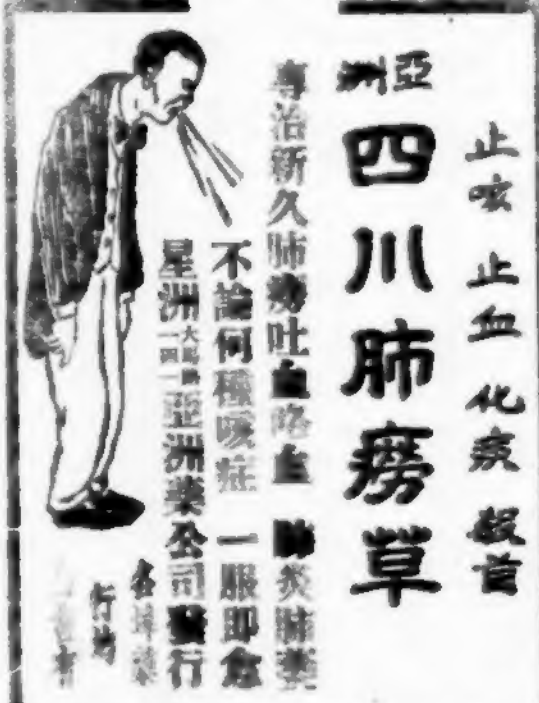 止咳 止血 化痰 殺菌
亞洲
四川肺癆草
專治新久肺癆吐血咯血 肺炎肺
不論何種咳症 一服即愈
星洲大馬路一四一亞洲藥公司發行
行均